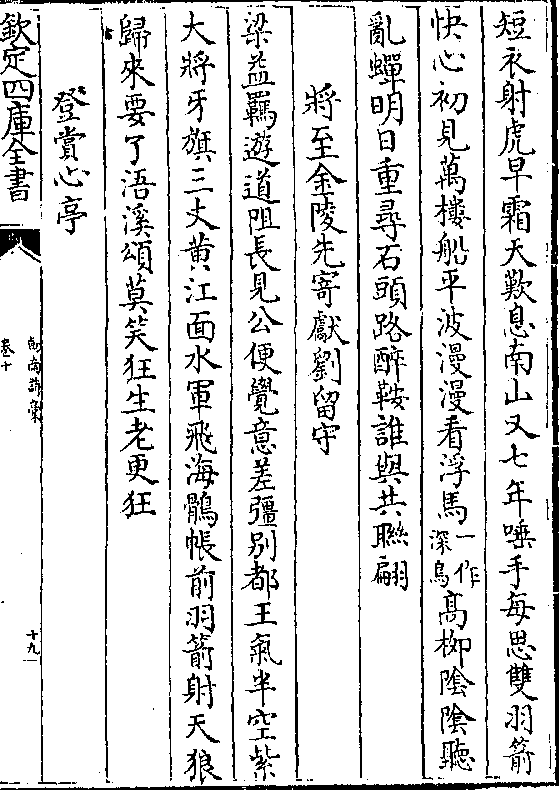 短衣射虎早霜天歎息南山又七年唾手每思雙羽箭
快心初見萬樓船平波漫漫看浮馬一作深烏高柳陰陰聽
亂蟬明日重尋石頭路醉鞍誰與共聯翩
將至金陵先寄獻劉留守
梁益羈遊道阻長見公便覺意差彊別都王氣半空紫
大將牙旗三丈黄江面水軍飛海鶻帳前羽箭射天狼
歸來要了浯溪頌莫笑狂生老更狂
登賞心亭
欽定四庫全書
劍南詩稾
卷十
十九